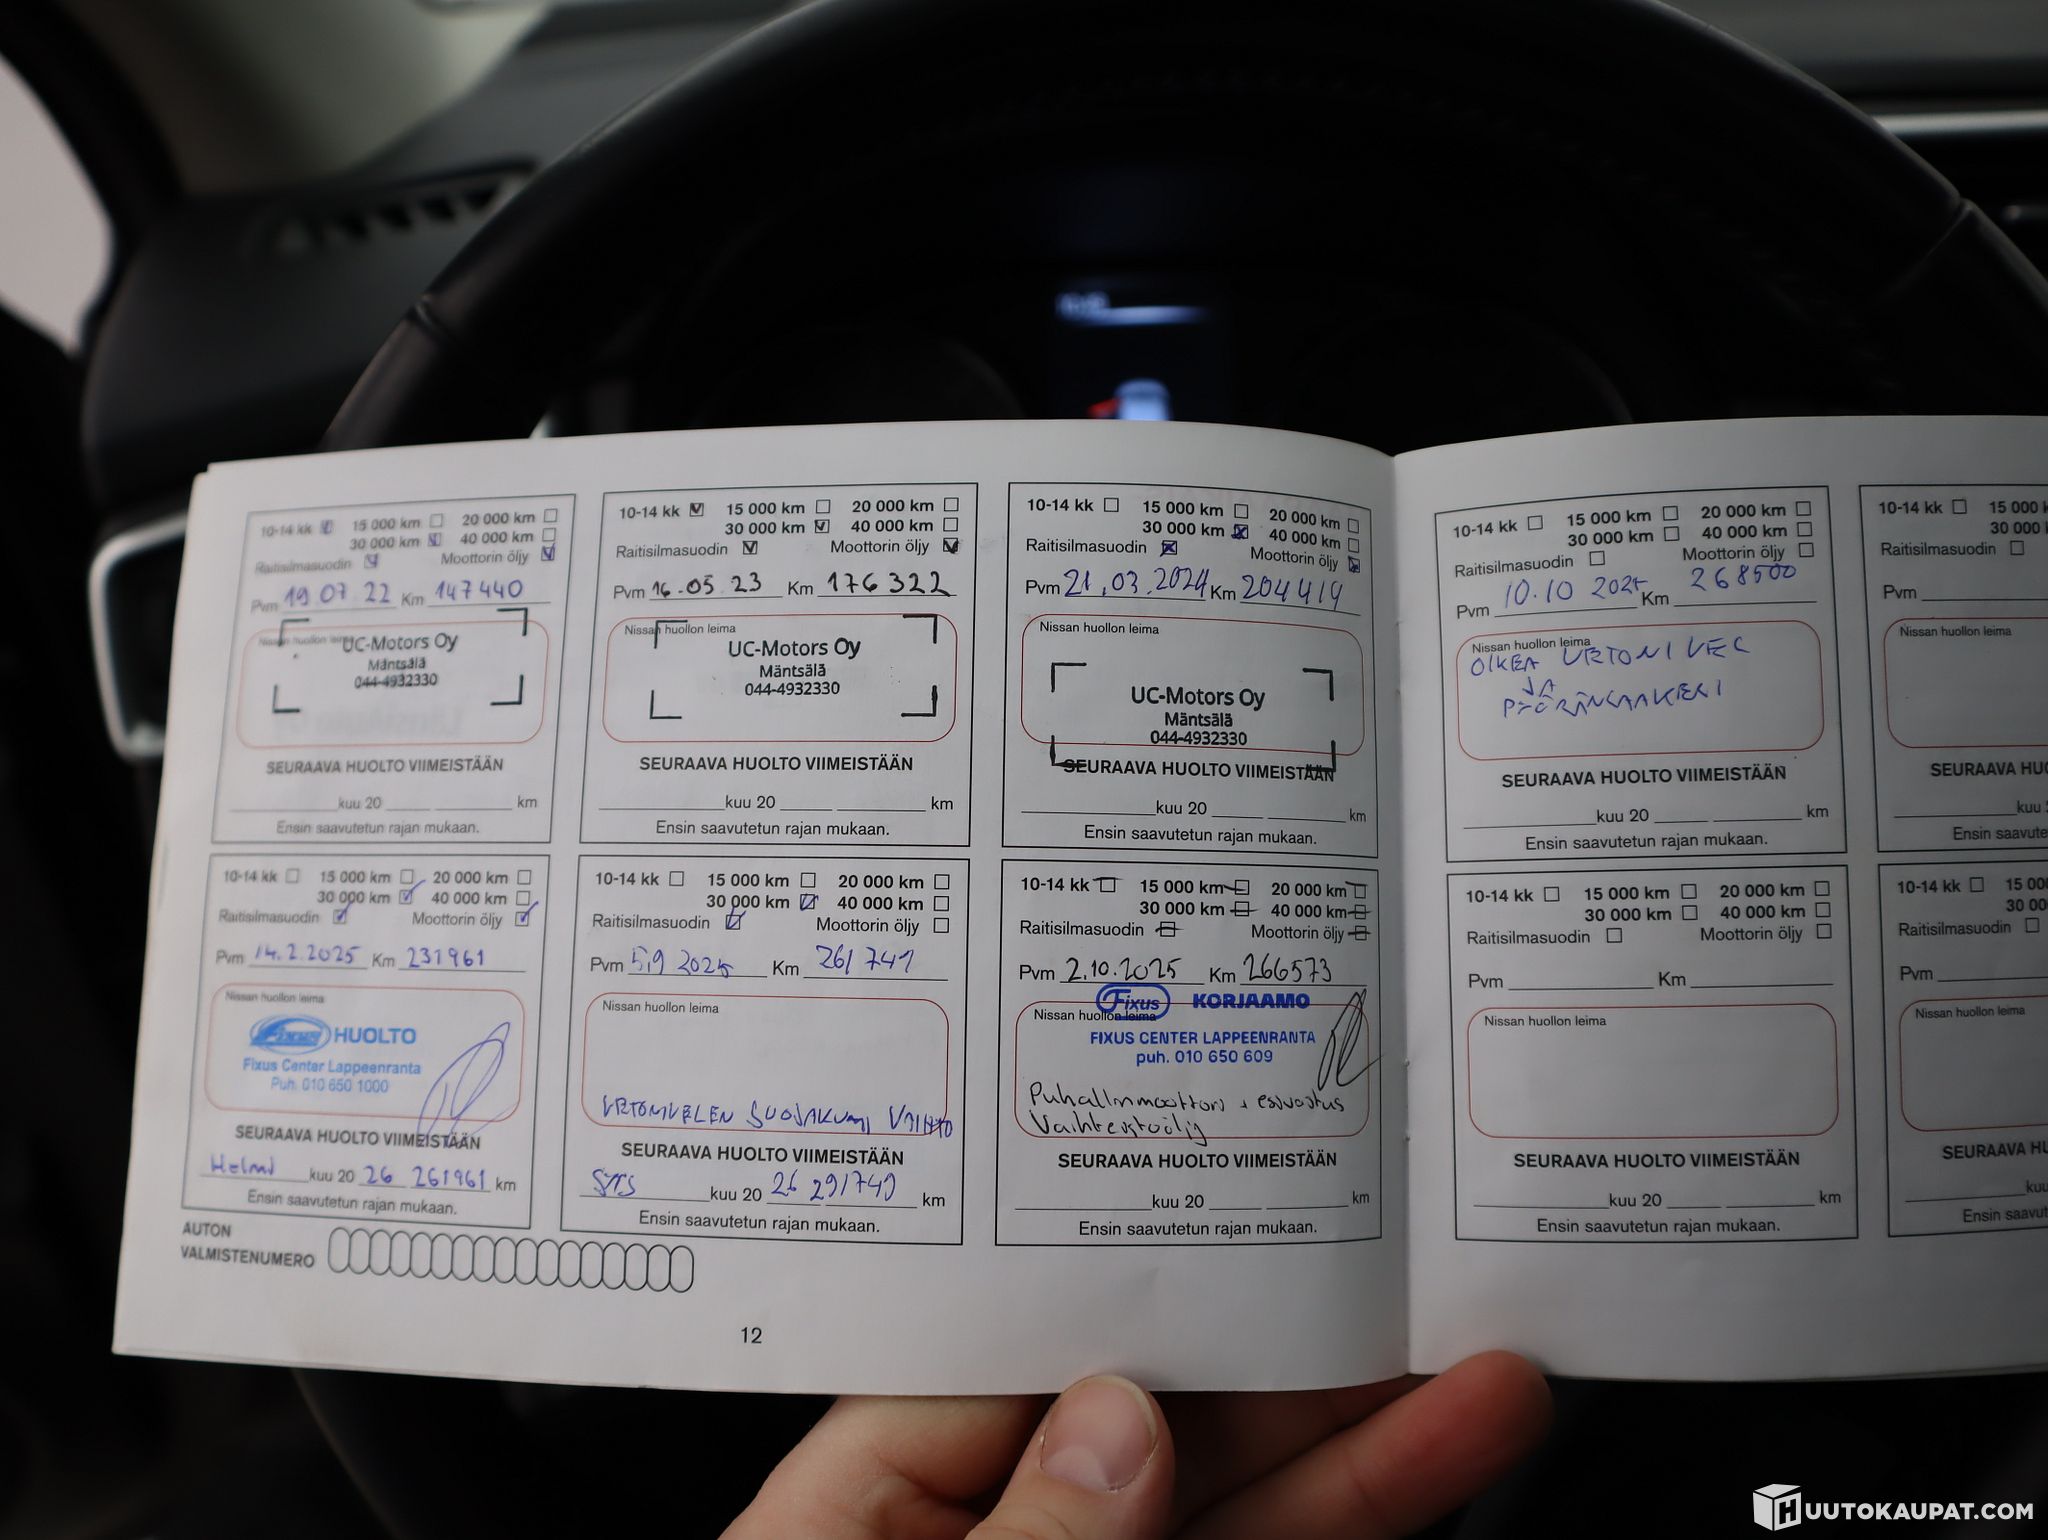 10-14 kk 15 000 km 20 000 km
30 000 km 40 000 km
Raitisilmasuodin Moottorin öljy
Pvm 19.07.22 Km 147440
Nissan huollon leima
UC-Motors Oy
Mäntsälä
044-4932330
SEURAAVA HUOLTO VIIMEISTÄÄN
kuu 20 km
Ensin saavutetun rajan mukaan.
10-14 kk 15 000 km 20 000 km
30 000 km 40 000 km
Raitisilmasuodin Moottorin öljy
Pvm 16.05.23 Km 176322
Nissan huollon leima
UC-Motors Oy
Mäntsälä
044-4932330
SEURAAVA HUOLTO VIIMEISTÄÄN
kuu 20 km
Ensin saavutetun rajan mukaan.
10-14 kk 15 000 km 20 000 km
30 000 km 40 000 km
Raitisilmasuodin Moottorin öljy
Pvm 21.03.2024 Km 204419
Nissan huollon leima
UC-Motors Oy
Mäntsälä
044-4932330
SEURAAVA HUOLTO VIIMEISTÄÄN
kuu 20 km
Ensin saavutetun rajan mukaan.
10-14 kk 15 000 km 20 000 km
30 000 km 40 000 km
Raitisilmasuodin Moottorin öljy
Pvm 14.2.2025 Km 231961
Nissan huollon leima
Fixus HUOLTO
Fixus Center Lappeenranta
Puh. 010 650 1000
SEURAAVA HUOLTO VIIMEISTÄÄN
Helmi kuu 20 26 261961 km
Ensin saavutetun rajan mukaan.
10-14 kk 15 000 km 20 000 km
30 000 km 40 000 km
Raitisilmasuodin Moottorin öljy
Pvm 5.9 2025 Km 261741
Nissan huollon leima
VETONIVELEN SUOJAKUMI VAIHTO
SEURAAVA HUOLTO VIIMEISTÄÄN
SYYS kuu 20 26 291740 km
Ensin saavutetun rajan mukaan.
10-14 kk 15 000 km 20 000 km
30 000 km 40 000 km
Raitisilmasuodin Moottorin öljy
Pvm 2.10.2025 Km 266573
Fixus KORJAAMO
Nissan huollon leima
FIXUS CENTER LAPPEENRANTA
puh. 010 650 609
Puhallinmoottori + esivastus
Vaihteistoöljy
SEURAAVA HUOLTO VIIMEISTÄÄN
kuu 20 km
Ensin saavutetun rajan mukaan.
AUTON
VALMISTENUMERO
12
10-14 kk 15 000 km 20 000 km
30 000 km 40 000 km
Raitisilmasuodin Moottorin öljy
Pvm 10.10 2025 Km 268500
Nissan huollon leima
OIKEA VETONIVEL
JA
PYÖRÄNLAAKERI
SEURAAVA HUOLTO VIIMEISTÄÄN
kuu 20 km
Ensin saavutetun rajan mukaan.
10-14 kk 15 000 km 20 000 km
30 000 km 40 000 km
Raitisilmasuodin Moottorin öljy
Pvm Km
Nissan huollon leima
SEURAAVA HUOLTO VIIMEISTÄÄN
kuu 20 km
Ensin saavutetun rajan mukaan.
10-14 kk 15 000
30 000
Raitisilmasuodin
Pvm
Nissan huollon leima
SEURAAVA HU
kuu
Ensin saavute
10-14 kk 15 00
30 00
Raitisilmasuodin
Pvm
Nissan huollon leima
SEURAAVA HU
kuu
Ensin saavut
HUUTOKAUPAT.COM